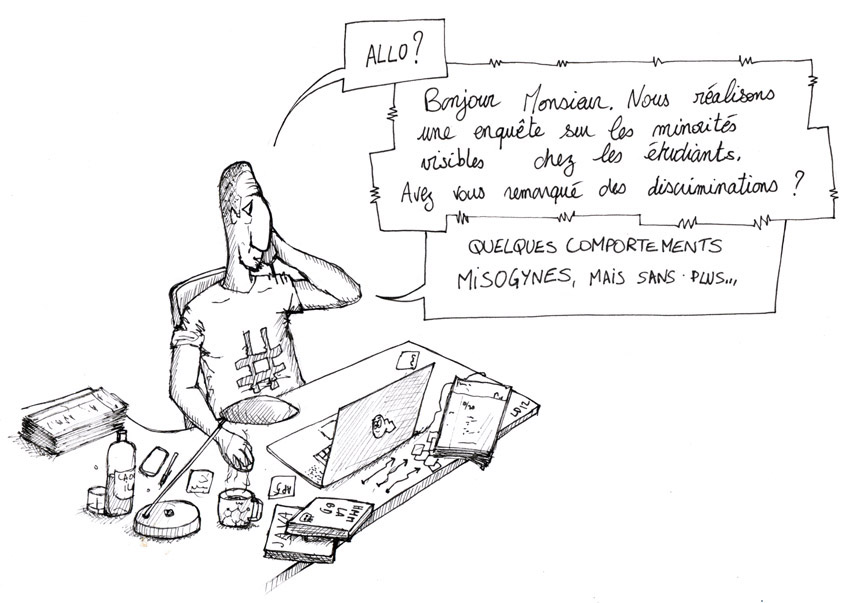 ALLO?
Bonjour Monsieur. Nous réalisons
une enquête sur les minorités
visibles chez les étudiants.
Avez vous remarqué des discriminations ?
QUELQUES COMPORTEMENTS
MISOGYNES, MAIS SANS PLUS...
#
JAVA